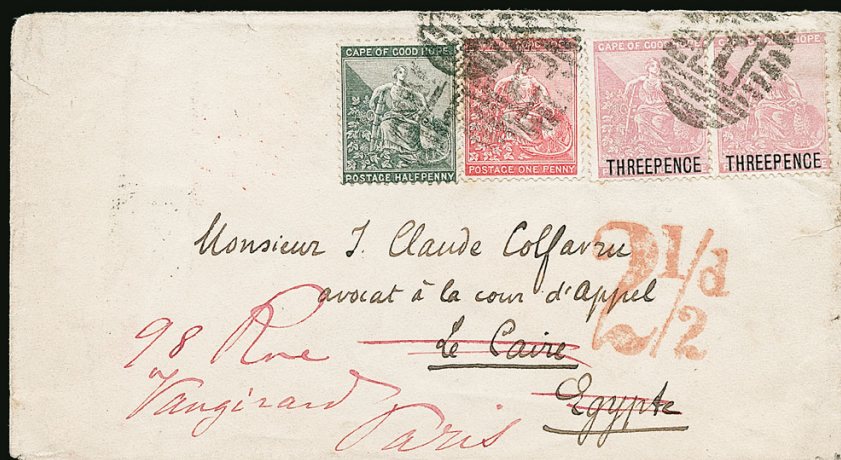 CAPE OF GOOD HOPE
POSTAGE HALFPENNY
POSTAGE ONE PENNY
CAPE OF GOOD
THREEPENCE
HOPE
THREEPENCE
Monsieur J. Claude Colfavru
avocat à la cour d'Appel
2 1/2 d
Le Caire
Egypte
98 Rue
Vaugirard
Paris